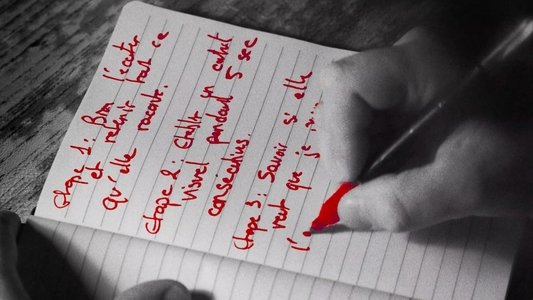 Etape 1 : Bien l'écouter
et retenir tout ce
qu'elle raconte.
Etape 2 : Etablir un contact
visuel pendant 5 sec
consécutives.
Etape 3 : Savoir si elle
veut que je
l'